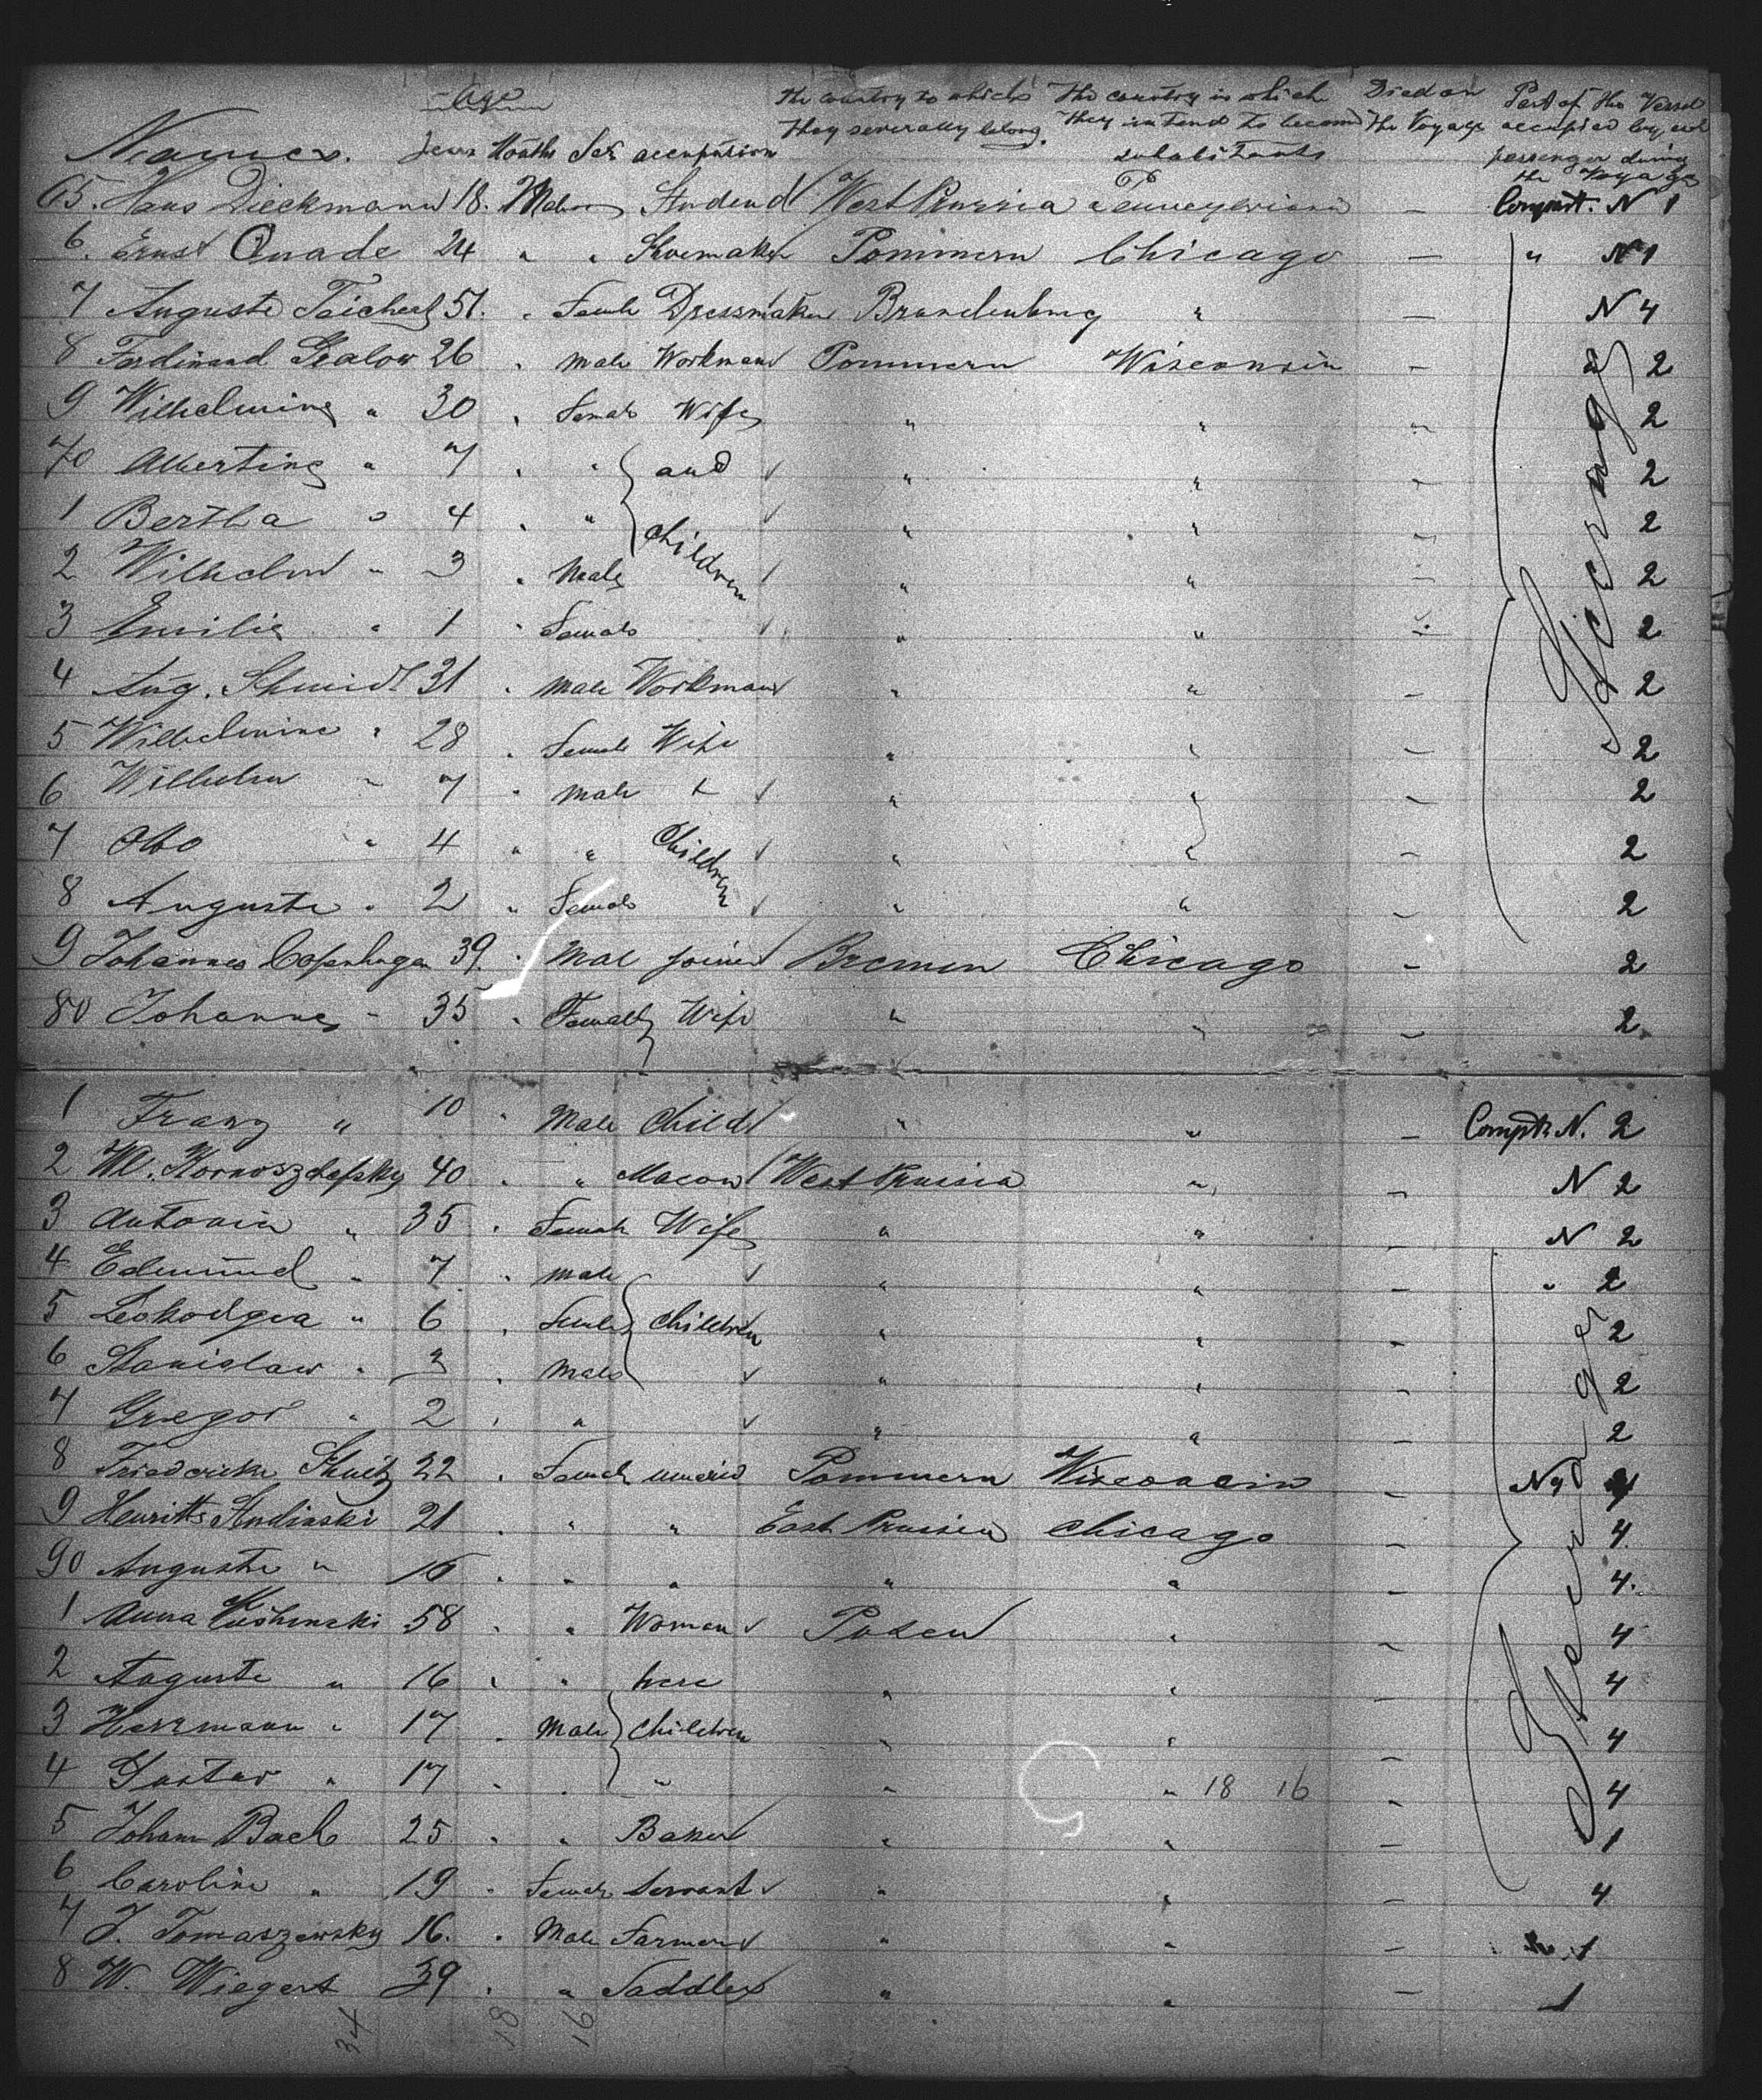 Age
The country to which The country in which Died on Part of the Vessel
they severally belong. they intend to become the Voyage occupied by each
Names. Years Months Sex occupation inhabitants passenger during
the Voyage
65. Hans Dieckmann 18. Male Studend West Prussia Pennsylvania — Compart. N 1
6. Ernst Quade 24 " " Shoemaker Pommern Chicago — " N 1
7 Auguste Teichert 51. " Female Dressmaker Brandenburg " — N 4
8 Ferdinand Gealow 26 " Male Workman Pommern Wisconsin — 2
9 Wilhelmine " 30 " Female Wife " " " 2
70 Albertine " 7 " " and " " " 2
1 Bertha " 4 " " children " " " 2
2 Wilhelm " 3 " Male " " " 2
3 Emilie " 1 " Female " " 2
4 Aug. Schmidt 31 " Male Workman " " — 2
5 Wilhelmine " 28 " Female Wife " " — 2
6 Wilhelm " 7 " Male + " " — 2
7 Otto " 4 " " Children " " — 2
8 Auguste " 2 " Female " " — 2
9 Johannes Copenhagen 39. " Male joiner Bremen Chicago — 2
80 Johannes " 35 " Female Wife " " — 2
Steerage
1 Franz " 10 " Male Child " " — Compt. N. 2
2 Wl. Kornoszchefsky 40 " " Macon West Prussia " — N 2
3 Antonia " 35 " Female Wife " " — N 2
4 Edmund " 7 " Male " " — " 2
5 Leokodgea " 6 " Female children " " — 2
6 Stanislaw " 3 " Male " " — 2
7 Gregor " 2 " " " " — 2
8 Friedericke 22 " Female Pommern Wisconsin — 4
9 21 " " " East Prussia Chicago — 4.
90 Auguste " 16 " " " " " — 4.
1 Anna 58 " " Woman Posen " — 4
2 Auguste " 16 " " here " " — 4
3 Herrmann " 17 " Male children " " — 4
4 Gustav " 17 " " " " " 18 16 — 4
5 Johann Bach 25 " " Baker " " — 1
6 Caroline " 19 " Female Servant " " — 4
7 J. Tomaszewsky 16. " Male Farmer " " — 1
8 W. Wiegert 39 " " Saddler " " — 1
Steerage
34 18 16